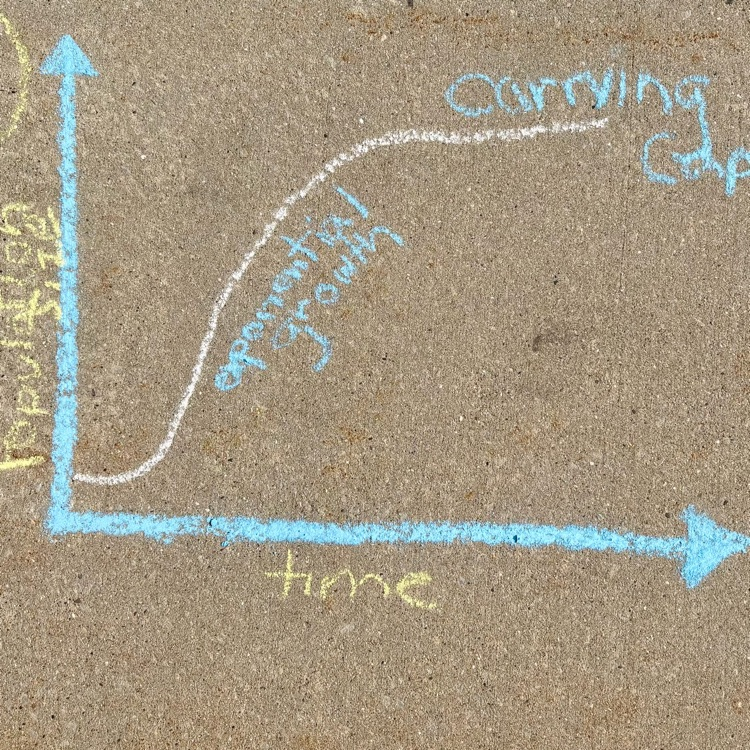 Carrying
Cap
eponential
growth
Population
size
time